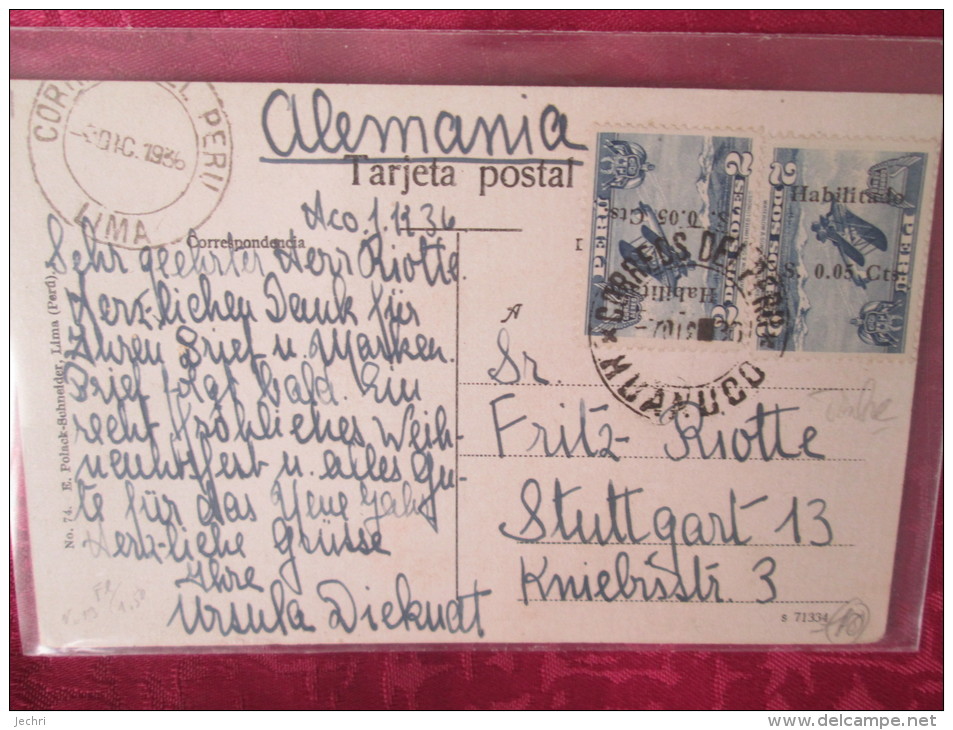 Alemania
Tarjeta postal
CORREOS DEL PERU
DIC. 1936
LIMA
Correspondencia
Aco 1.12.36
Sehr geehrter Herr Kiotte.
Herzlichen Dank für
Ihren Brief u. Marken.
Brief folgt bald. Ein
recht fröhliches Weih-
nachtsfest u. alles Gu-
te für das Neue Jahr
Herzliche Grüsse
Ihre
Ursula Diekudt
No. 74. E. Polack-Schneider, Lima (Perú).
A
Sr.
Fritz Kiotte
Stuttgart 13
Kniebisstr. 3
s 71334
2
DOS SOLES
PERU
Habilitado
S. 0.05 Cts.
2
PERU
Habilit
S. 0.05 Cts.
CORREOS DEL PERU
HUANUCO
jechri
http://www.delcampe.net